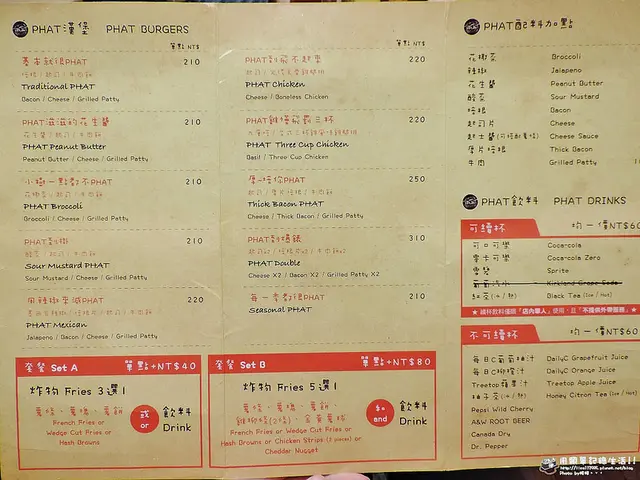 PHAT漢堡 PHAT BURGERS
單點 NT$
基本就很PHAT 210
培根 / 起司 / 牛肉餅
Traditional PHAT
Bacon / Cheese / Grilled Patty
PHAT滋滋的花生醬 210
花生醬 / 起司 / 牛肉餅
PHAT Peanut Butter
Peanut Butter / Cheese / Grilled Patty
小樹一點都不PHAT 210
花椰菜 / 起司 / 牛肉餅
PHAT Broccoli
Broccoli / Cheese / Grilled Patty
210
酸菜 / 起司 / 牛肉餅
Sour Mustard PHAT
Sour Mustard / Cheese / Grilled Patty
用辣椒來減PHAT 220
PHAT Mexican
Jalapeno / Bacon / Cheese / Grilled Patty
單點 NT$
PHAT到飛不起來 220
PHAT Chicken
Cheese / Boneless Chicken
220
PHAT Three Cup Chicken
Basil / Three Cup Chicken
厚培你PHAT 250
起司 / 厚片培根 / 牛肉餅
Thick Bacon PHAT
Cheese / Thick Bacon / Grilled Patty
PHAT到爆錶 310
起司x2 / 培根x2 / 牛肉餅x2
PHAT Double
Cheese X2 / Bacon X2 / Grilled Patty X2
每一季都很PHAT 210
Seasonal PHAT
套餐 Set A 單點+NT$40
炸物 Fries 3選1
薯條 · 薯塊 · 薯餅
French Fries or
Wedge Cut Fries or
Hash Browns
或 or
飲料
Drink
套餐 Set B 單點+NT$80
炸物 Fries 5選1
薯條 · 薯塊 · 薯餅
雞柳條(2條) · 金黃薯球
French Fries or Wedge Cut Fries or
Hash Browns or Chicken Strips (2 pieces) or
Cheddar Nugget
和 and
飲料
Drink
PHAT配料加點
花椰菜 Broccoli
辣椒 Jalapeno
花生醬 Peanut Butter
酸菜 Sour Mustard
培根 Bacon
起司片 Cheese
起士醬 Cheese Sauce
厚片培根 Thick Bacon
牛肉 Grilled Patty
PHAT飲料 PHAT DRINKS
可續杯 均一價NT$60
可口可樂 Coca-cola
零卡可樂 Coca-cola Zero
雪碧 Sprite
葡萄汽水 Kirkland Grape Soda
紅茶(冰/熱) Black Tea (Ice / Hot)
★ 續杯飲料僅限「店內單人」使用,且「不提供外帶服務」★
不可續杯 均一價NT$60
每日C葡萄柚汁 DailyC Grapefruit Juice
每日C柳橙汁 DailyC Orange Juice
Treetop蘋果汁 Treetop Apple Juice
柚子茶(冰/熱) Honey Citron Tea (Ice / Hot)
Pepsi Wild Cherry
A&W ROOT BEER
Canada Dry
Dr. Pepper
用觀單記錄生活!!